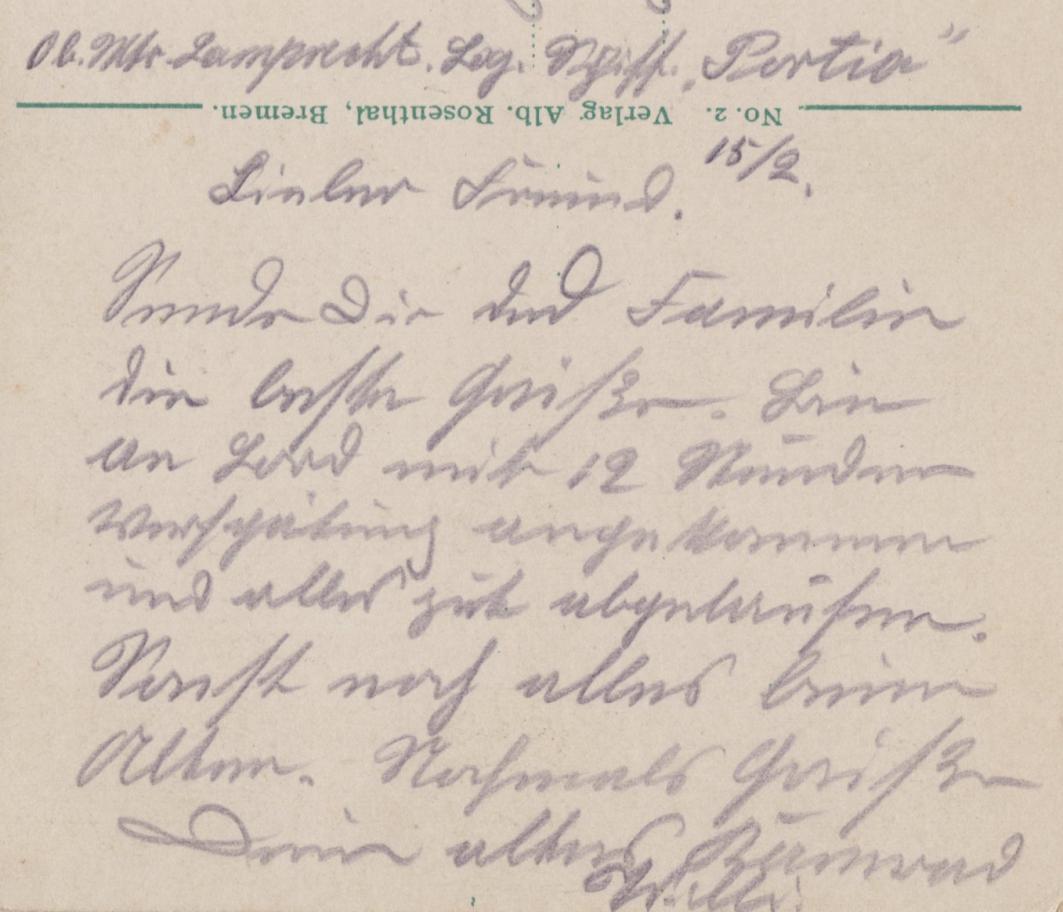 Ob. Mtr. Lamprecht. Log. Schiff. „Portia“
No. 2. Verlag Alb. Rosenthal, Bremen.
15/2.
Lieber Freund.
Sende Dir und Familie
die beste Grüße. Bin
an Bord mit 12 Stunden
Verspätung angekommen
und alles gut abgelaufen.
Sonst noch alles beim
Alten. Nochmals Grüße
Dein alter Kamerad
Willi